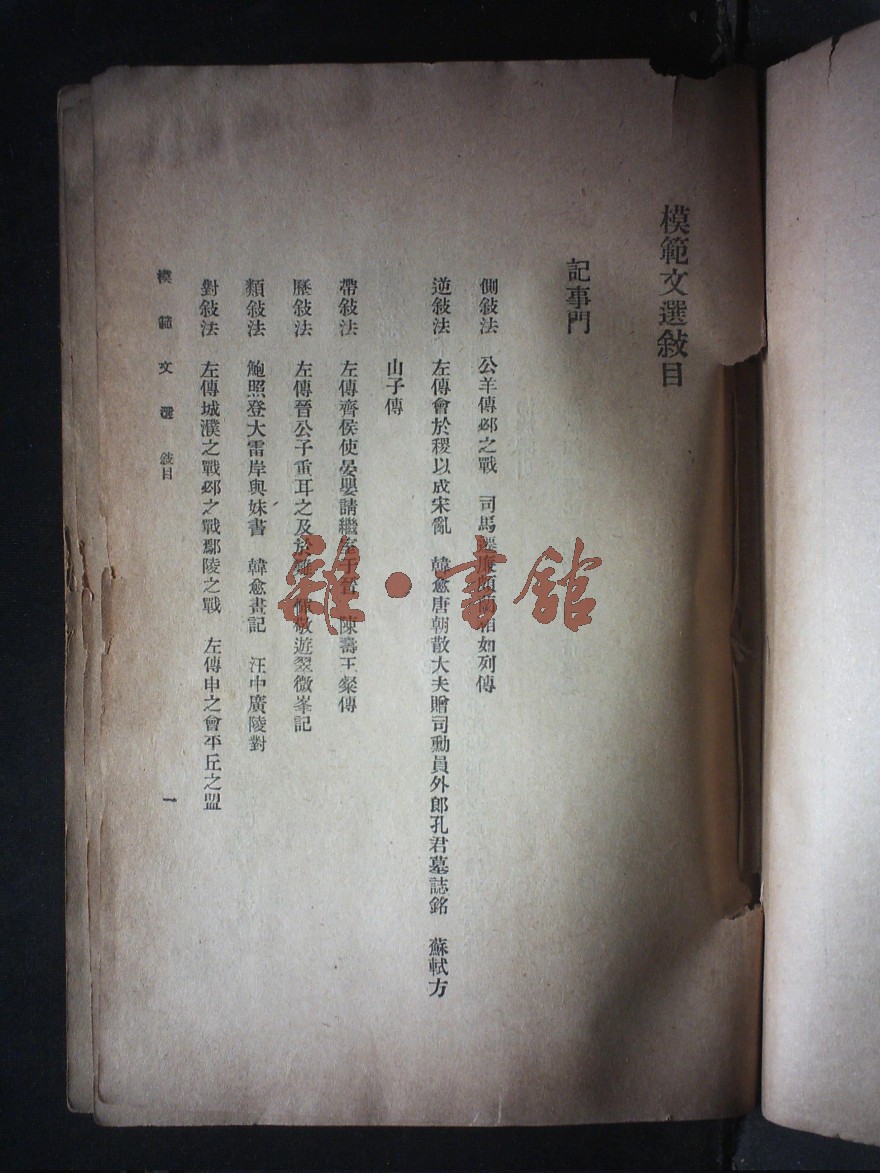 模範文選敍目
記事門
側敍法　公羊傳邲之戰　司馬遷廉頗藺相如列傳
逆敍法　左傳會於稷以成宋亂　韓愈唐朝散大夫贈司勳員外郎孔君墓誌銘　蘇軾方
山子傳
帶敍法　左傳齊侯使晏嬰請繼室于晉　陳壽王粲傳
歷敍法　左傳晉公子重耳之及於難　惲敬遊翠微峯記
類敍法　鮑照登大雷岸與妹書　韓愈畫記　汪中廣陵對
對敍法　左傳城濮之戰邲之戰鄢陵之戰　左傳申之會平丘之盟
模範文選　敍目　一
雜·書館